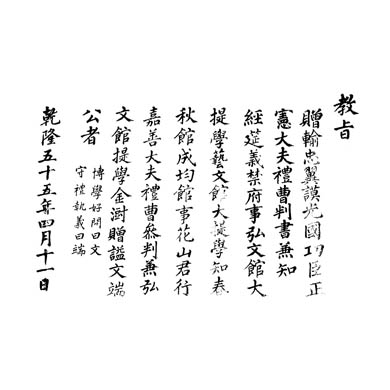 教旨
贈輸忠翼謨光國功臣正
憲大夫禮曹判書兼知
經筵義禁府事弘文館大
提學藝文館大提學知春
秋館成均館事花山君行
嘉善大夫禮曹叅判兼弘
文館提學金澍贈諡文端
公者
博學好問曰文
守禮執義曰端
乾隆五十五年四月十一日